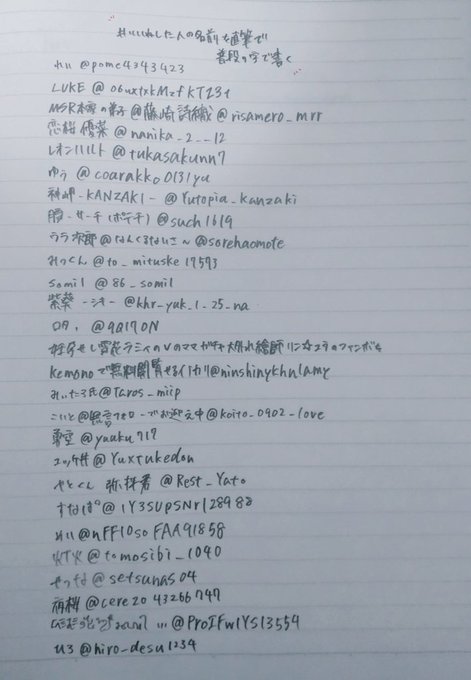 #いいねした人の名前を直筆で
普段の字で書く
れい @pome4343423
LUKE @o6uxtxkMzfKT23t
MSR本家の弟子@藤崎詩織@risamero_mrr
恋桜 優菜 @nanika_2__12
レオンハルト @tukasakunn7
ゆう @coarakko0131yu
神岬-KANZAKI- @Yutopia_kanzaki
サーチ(ポテチ) @such1619
ララ次郎@なんくるないさ~@sorehaomote
みっくん @to_mituske17573
somil @86_somil
紫葵 -シキ- @khr_yuk_1_25_na
ロタ. @9Q17ON
Kemonoで無料閲覧せるイカリ@ninshinykhulamy
みいたろ氏@Taros_miip
こいと@無言フォローでお迎え中@koito_0902_love
@yuuku717
ユッケ丼@Yuxtukedon
やとくん 弥抹者 @Rest_Yato
すなぱ°@1Y3SUpSNr128988
れい@nFF10soFAA91858
@tomosibi_1040
せつな@setsunas04
@cere2043266747
@ProIFw1YS13554
U3@hiro_desu1234